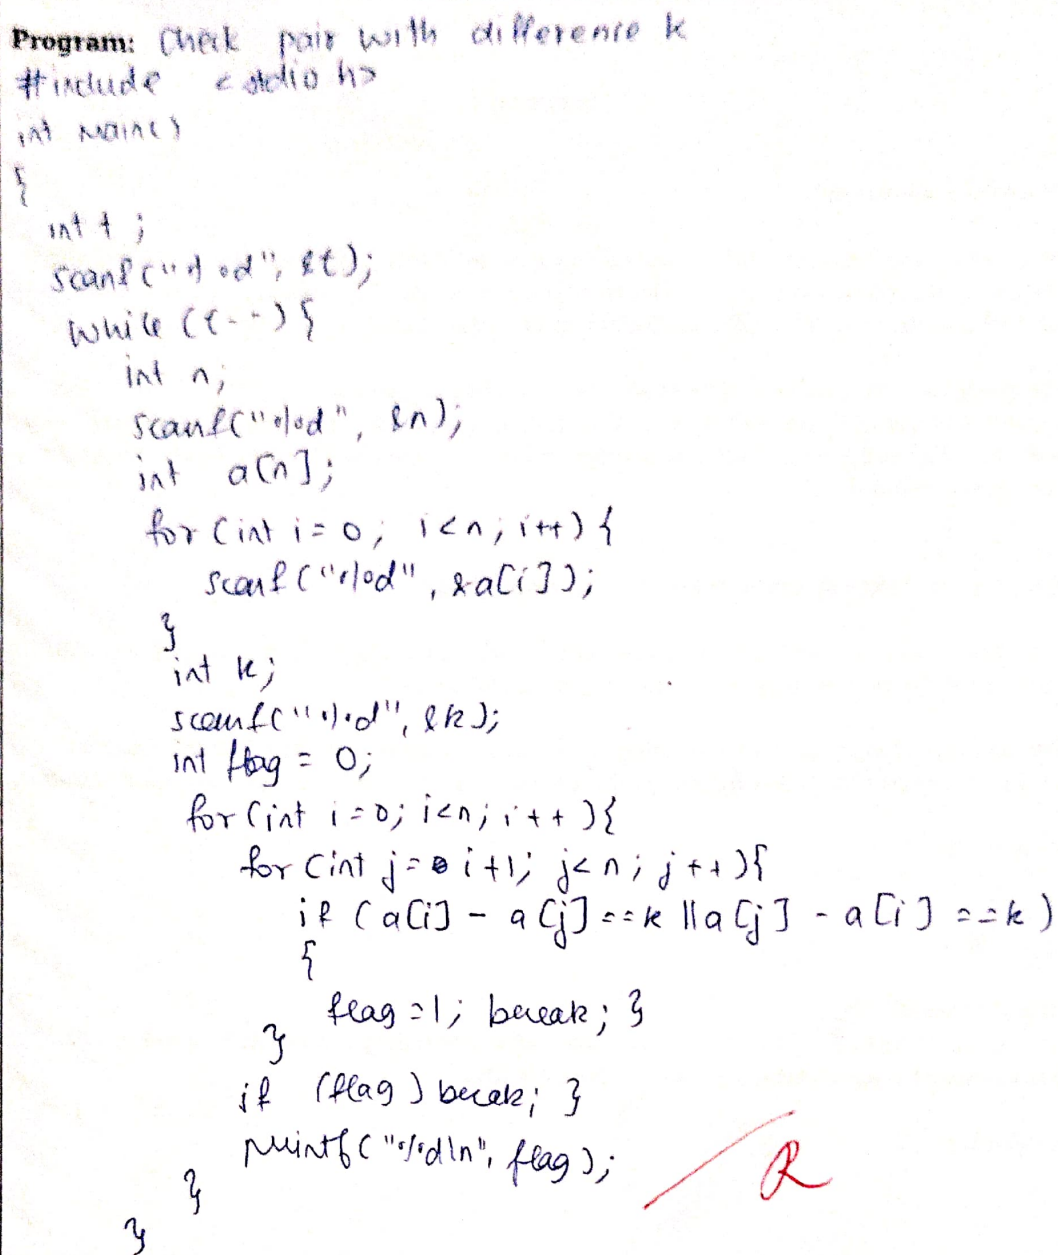 Program: Check pair with difference k
#include <stdio h>
int main()
{
int t;
scanf("%d", &t);
while (t--) {
int n;
scanf("%d", &n);
int a[n];
for (int i=0; i<n; i++) {
scanf("%d", &a[i]);
}
int k;
scanf("%d", &k);
int flag = 0;
for (int i=0; i<n; i++){
for (int j= i+1; j<n; j++){
if (a[i] - a[j]==k || a[j] - a[i] ==k)
{
flag=1; break; }
}
if (flag) break; }
printf("%d\n", flag);
}
}